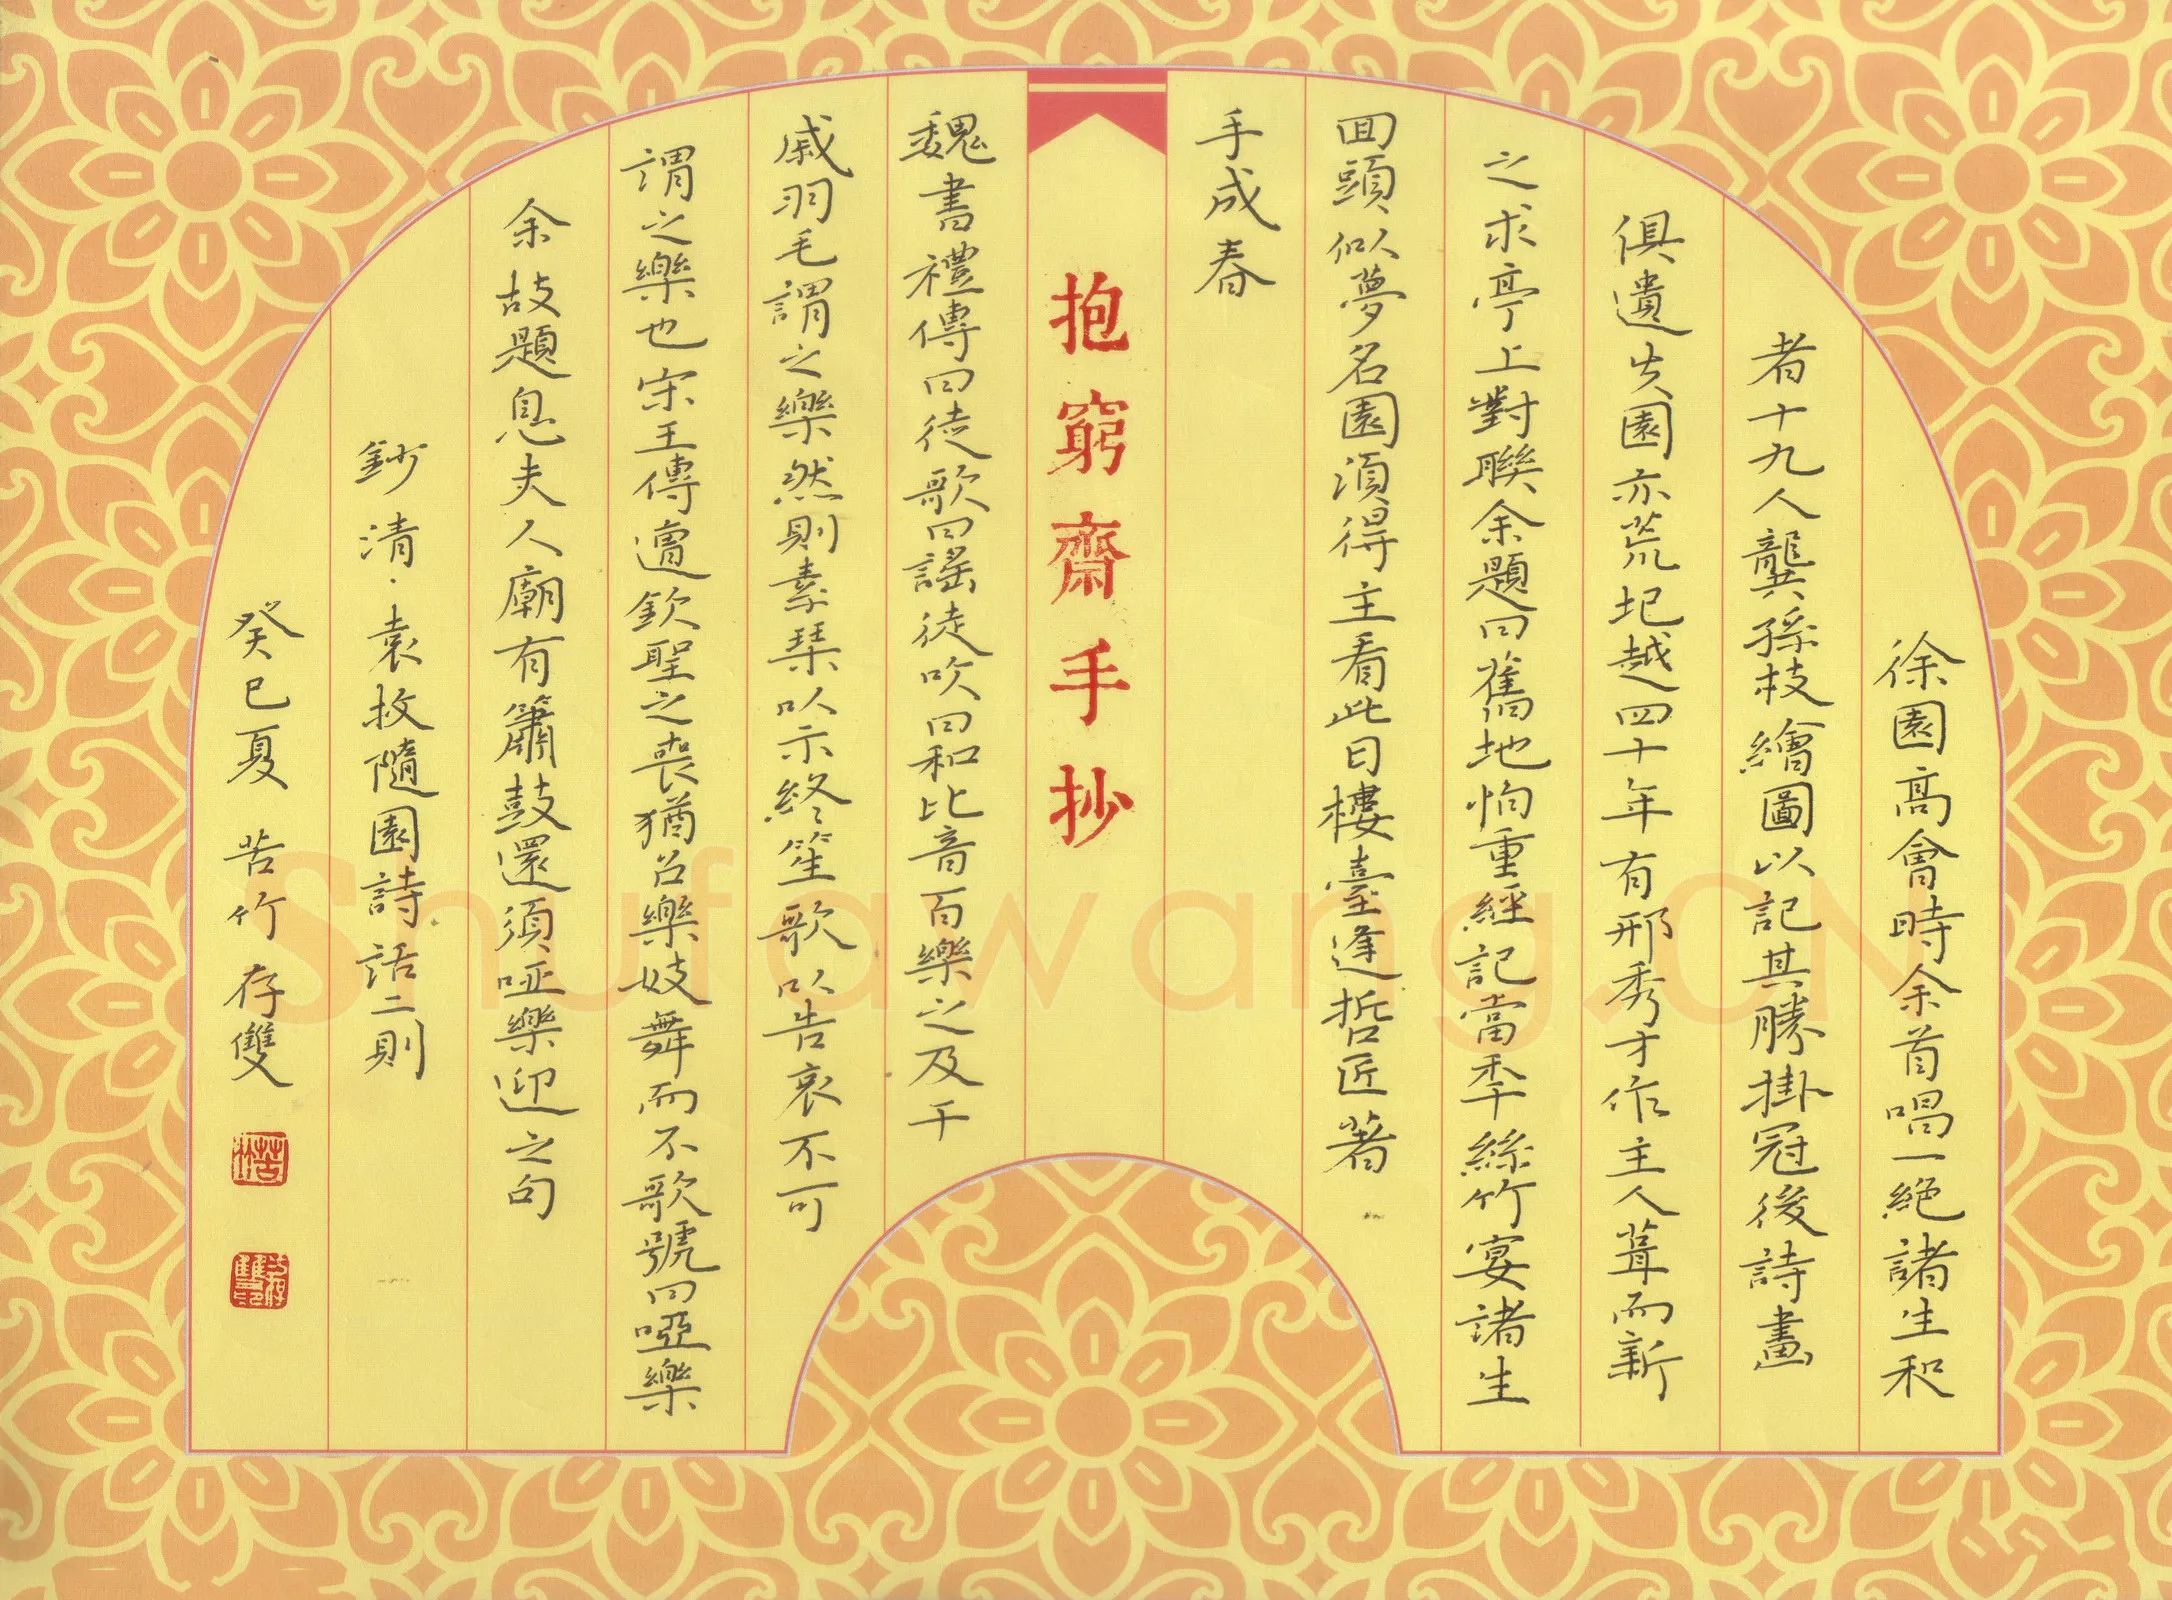 徐園高會時余首唱一絕諸生和
者十九人龔孫枝繪圖以記其勝掛冠後詩畫
俱遺失園亦荒圮越四十年有邢秀才作主人葺而新
之求亭上對聯余題曰舊地怕重經記當年絲竹宴諸生
回頭似夢名園須得主看此日樓臺逢哲匠著
手成春
抱窮齋手抄
魏書禮傳曰徒歌曰謠徒吹曰和比音百樂之及干
戚羽毛謂之樂然則素琴以示終笙歌以告哀不可
謂之樂也宋王傳齋欽聖之喪猶召樂妓舞而不歌號曰啞樂
余故題息夫人廟有簫鼓還須啞樂迎之句
鈔清·袁枚隨園詩話二則
癸巳夏 苦竹存雙
Shufawang.CN